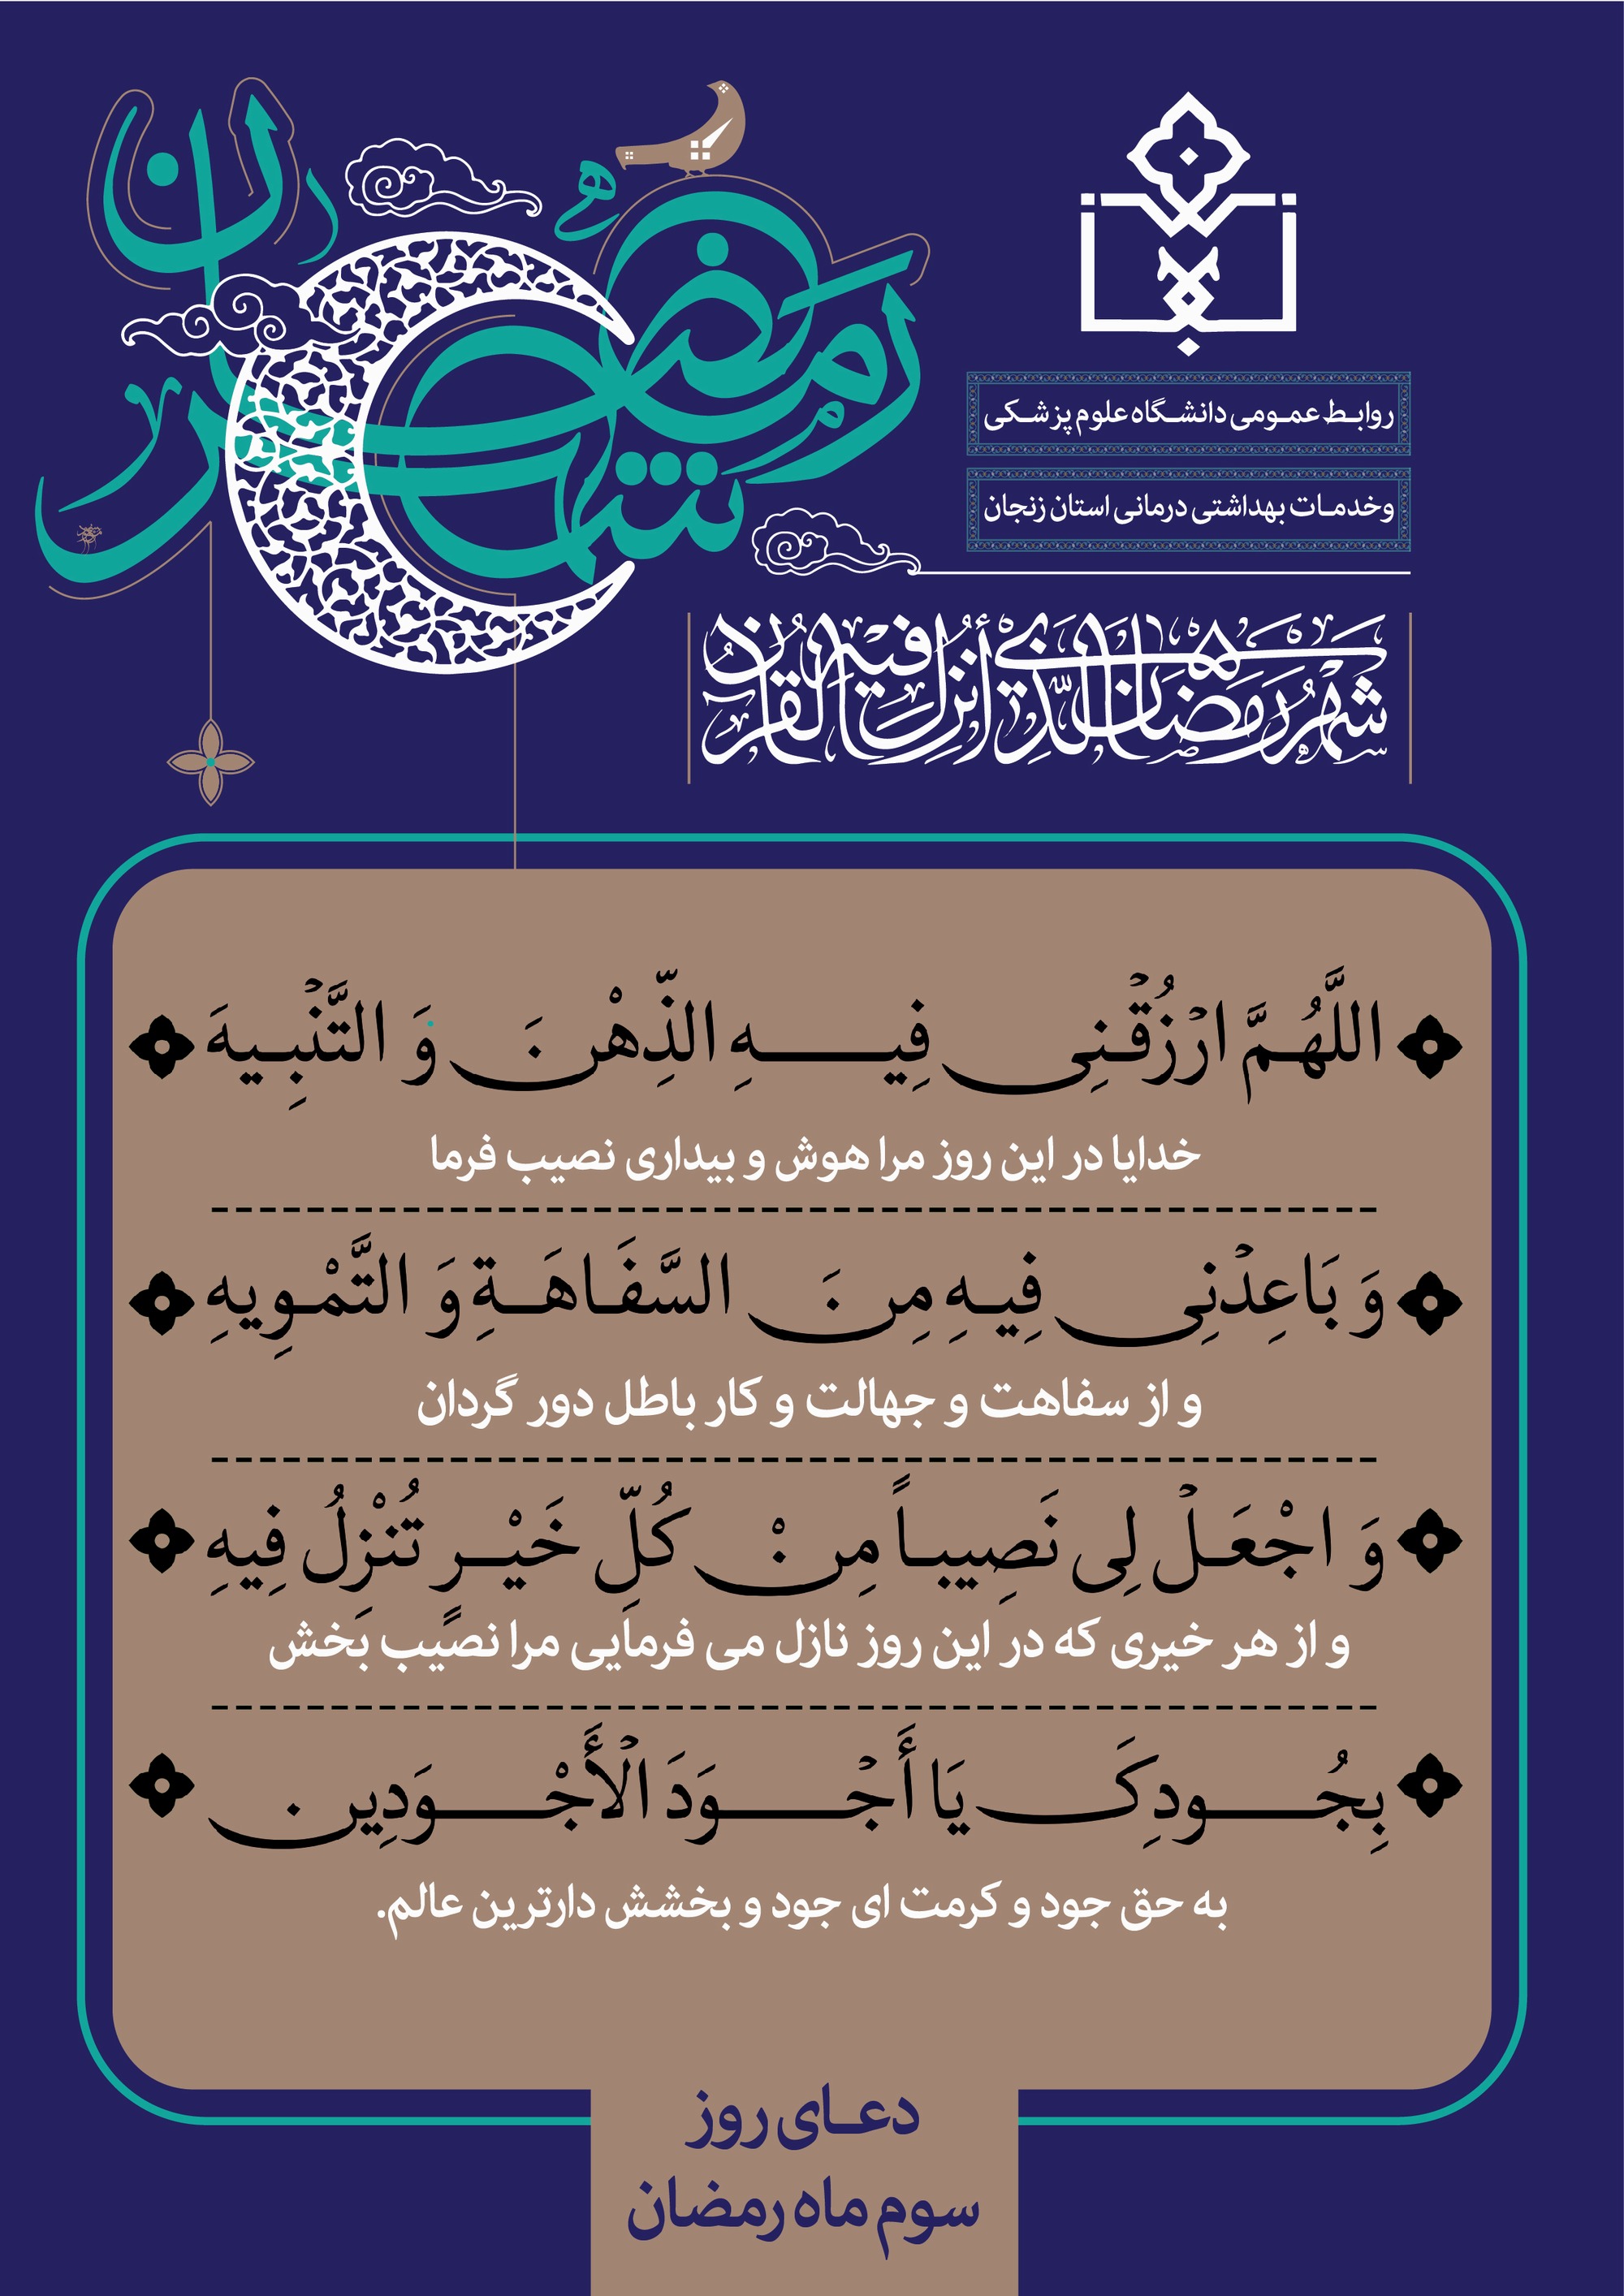 شهر رمضان
روابط عمومی دانشگاه علوم پزشکی
وخدمات بهداشتی درمانی استان زنجان
شهر رمضان الذي أنزل فيه القرآن
اللَّهُمَّ ارْزُقْنِی فِیهِ الذِّهْنَ وَ التَّنْبِیهَ
خدایا در این روز مرا هوش و بیداری نصیب فرما
وَ بَاعِدْنِی فِیهِ مِنَ السَّفَاهَةِ وَ التَّمْوِیهِ
و از سفاهت و جهالت و کار باطل دور گردان
وَ اجْعَلْ لِی نَصِیباً مِنْ کُلِّ خَیْرٍ تُنْزِلُ فِیهِ
و از هر خیری که در این روز نازل می فرمایی مرا نصیب بخش
بِجُودِکَ یَا أَجْوَدَ الْأَجْوَدِین
به حق جود و کرمت ای جود و بخشش دارترین عالم.
دعای روز
سوم ماه رمضان